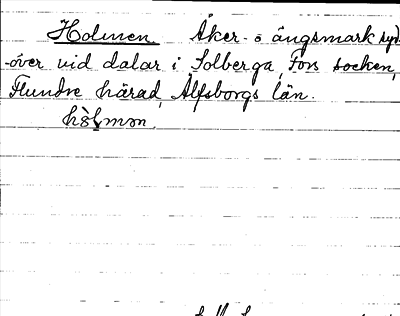 Holmen Åker- o ängsmark syd-
-över vid dalar i Solberga, Fors socken,
Flundre härad, Älfsborgs län.
hòlmən.